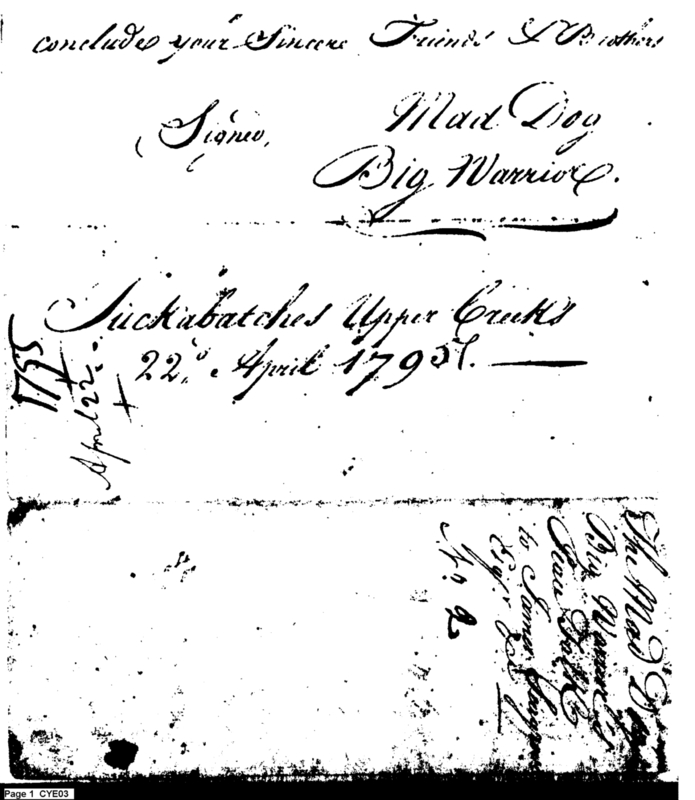 conclude your Sincere Friends & Brothers
Signed, Mad Dog
Big Warrior.
Tuckabatches Upper Creeks
22d April 1795.
1795
April 22
The Mad Dog
Big Warrior
Talk
to James
Esqr.
No. 2
Page 1 CYE03